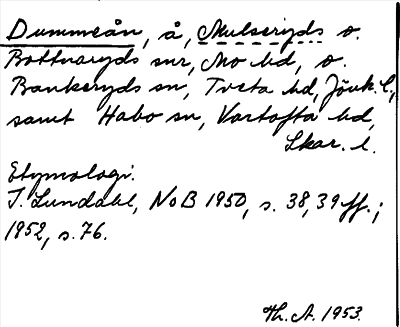 Dummeån, å, Mulseryds o.
Bottnaryds snr, Mo hd, o.
Bankeryds sn, Tveta hd, Jönk. l.,
samt Habo sn, Vartofta hd,
Skar. l.
Etymologi.
I. Lundahl, NoB 1950, s. 38, 39 ff.;
1952, s. 76.
Th. A. 1953.